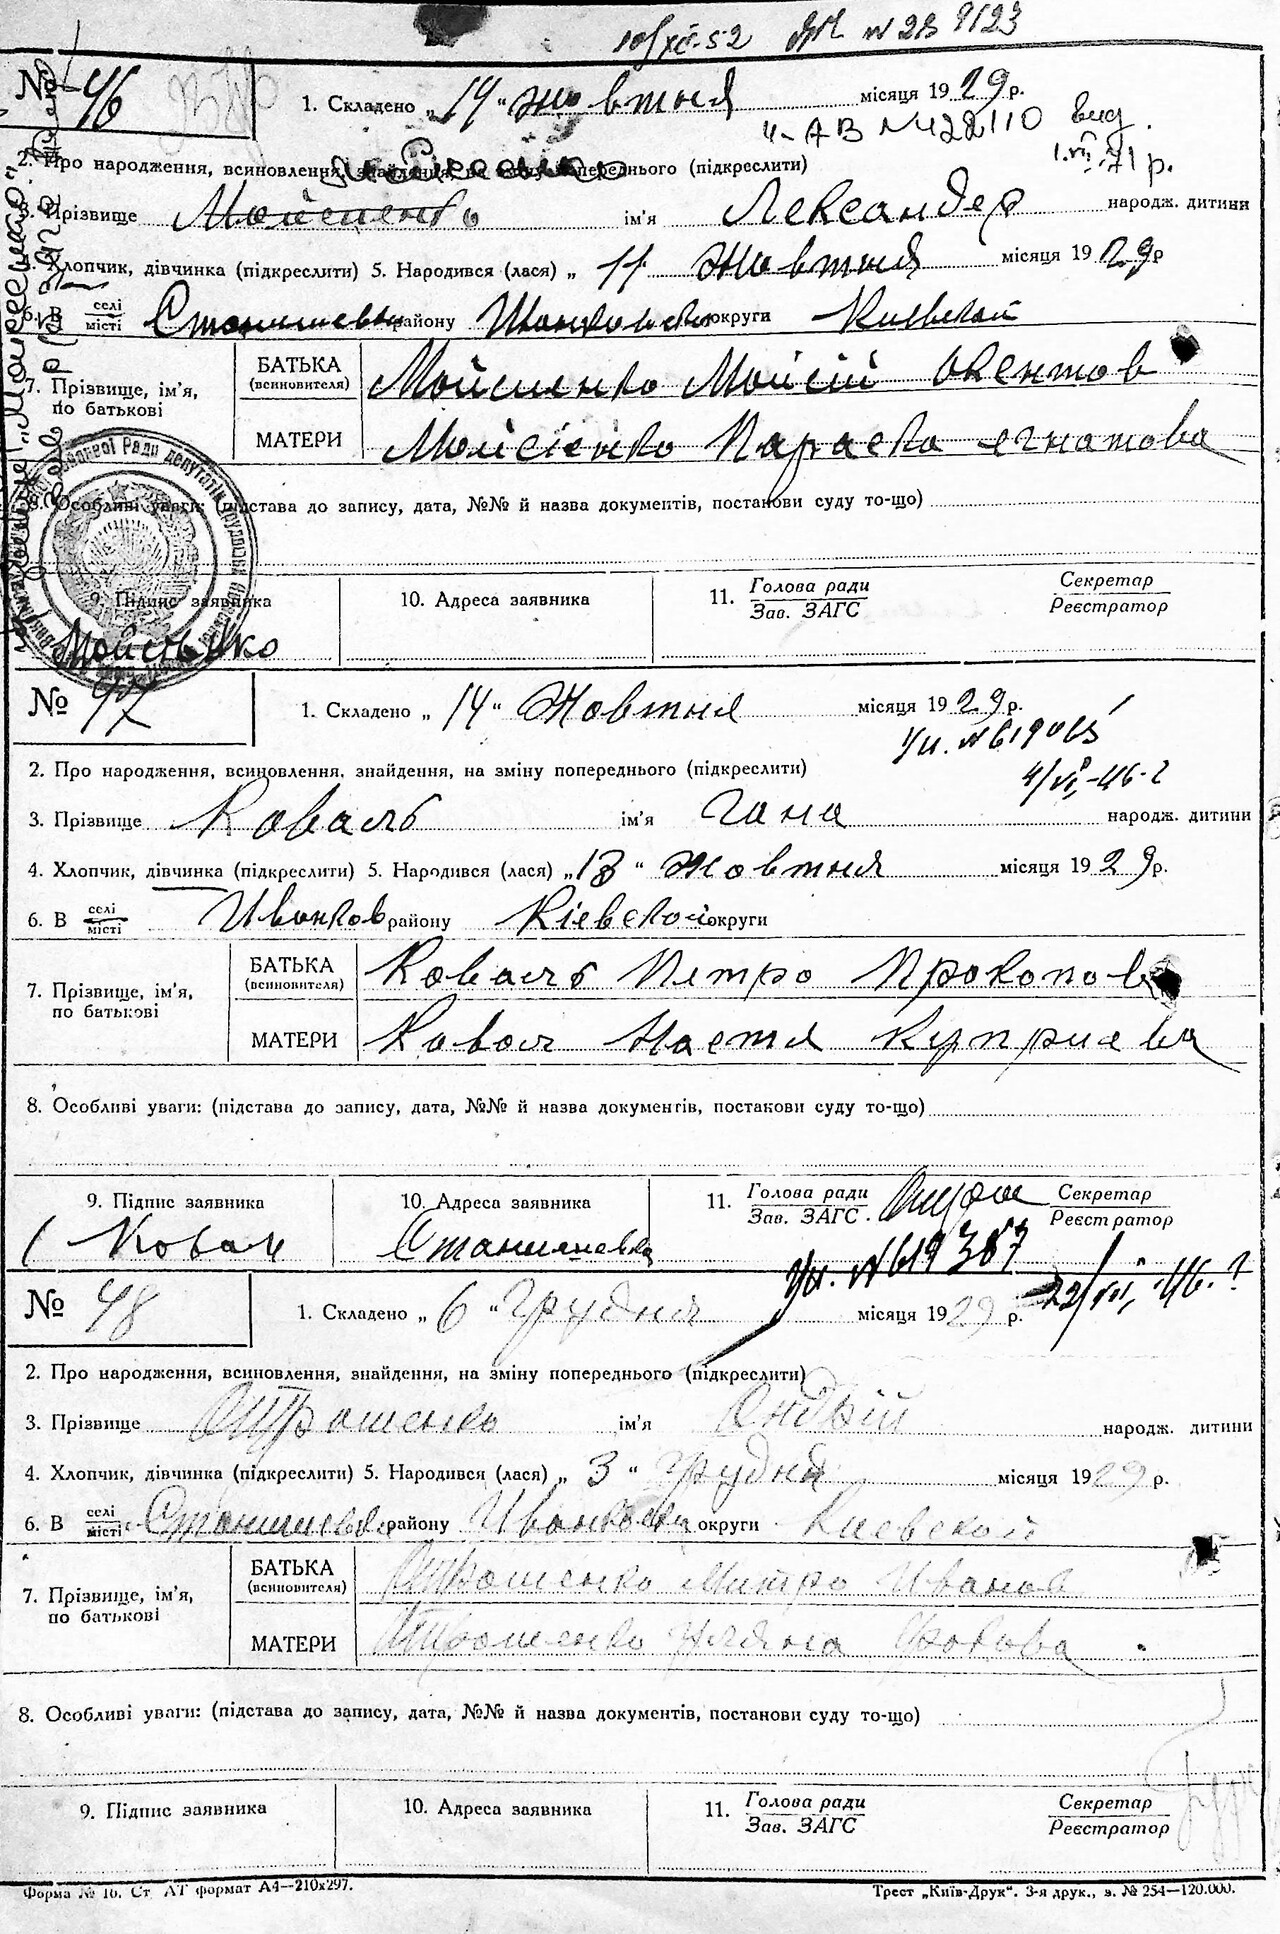 10/XI-52 № 2В 9123
№ 46
1. Складено „14" жовтня місяця 1929 р.
II-АВ № 422110 вид.
1.VII.71 р.
2. Про народження, всиновлення, знайдення, на зміну попереднього (підкреслити)
3. Прізвище Мойсиенко ім'я Лександер народж. дитини
4. Хлопчик, дівчинка (підкреслити) 5. Народився (лася) „11 жовтня місяця 1929 р
6. В селі/місті Станишевка району Иванковски округи Киевской
7. Прізвище, ім'я, по батькові
БАТЬКА (всиновителя) Мойсиенко Мойсій
МАТЕРИ Мойсіенко Параска Ягнатова
8. Особливі уваги: (підстава до запису, дата, №№ й назва документів, постанови суду то-що)
9. Підпис заявника 10. Адреса заявника 11. Голова ради/Зав. ЗАГС Секретар/Реєстратор
Мойсіенко
№ 47
1. Складено „14" Жовтня місяця 1929 р.
2. Про народження, всиновлення, знайдення, на зміну попереднього (підкреслити)
3. Прізвище Коваль ім'я Гана народж. дитини
4. Хлопчик, дівчинка (підкреслити) 5. Народився (лася) „13" жовтня місяця 1929 р.
6. В селі/місті Иванков району Кіевской округи
7. Прізвище, ім'я, по батькові
БАТЬКА (всиновителя) Коваль Петро Прокопов
МАТЕРИ Коваль Настя Куприева
8. Особливі уваги: (підстава до запису, дата, №№ й назва документів, постанови суду то-що)
9. Підпис заявника 10. Адреса заявника 11. Голова ради/Зав. ЗАГС Секретар/Реєстратор
Коваль Станишевка
№ 619387
№ 48
1. Складено „6" Грудня місяця 1929 р.
2. Про народження, всиновлення, знайдення, на зміну попереднього (підкреслити)
3. Прізвище ім'я Андрій народж. дитини
4. Хлопчик, дівчинка (підкреслити) 5. Народився (лася) „3" грудня місяця 1929 р.
6. В селі/місті Станишевка району Иванковски округи Киевской
7. Прізвище, ім'я, по батькові
БАТЬКА (всиновителя) Митро Иванов
МАТЕРИ
8. Особливі уваги: (підстава до запису, дата, №№ й назва документів, постанови суду то-що)
9. Підпис заявника 10. Адреса заявника 11. Голова ради/Зав. ЗАГС Секретар/Реєстратор
Форма № 16. Ст. АТ формат А4—210х297. Трест „Київ-Друк". 3-я друк., з. № 254—120.000.